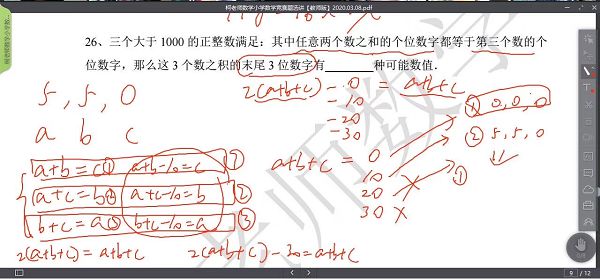 柯老师数学小学数学竞赛题选讲【教师版】2020.03.08.pdf
26、三个大于 1000 的正整数满足：其中任意两个数之和的个位数字都等于第三个数的个
位数字，那么这 3 个数之积的末尾 3 位数字有________种可能数值.
5, 5, 0
a b c
a+b=c① a+b-10=c ①
a+c=b② a+c-10=b ②
b+c=a③ b+c-10=a ③
2(a+b+c)=a+b+c 2(a+b+c)-30=a+b+c
2(a+b+c)-0=a+b+c
-10
-20
-30
a+b+c=0
10
20 ×
30 ×
① 0,0,0
② 5,5,0
①
老师数学
9 / 12